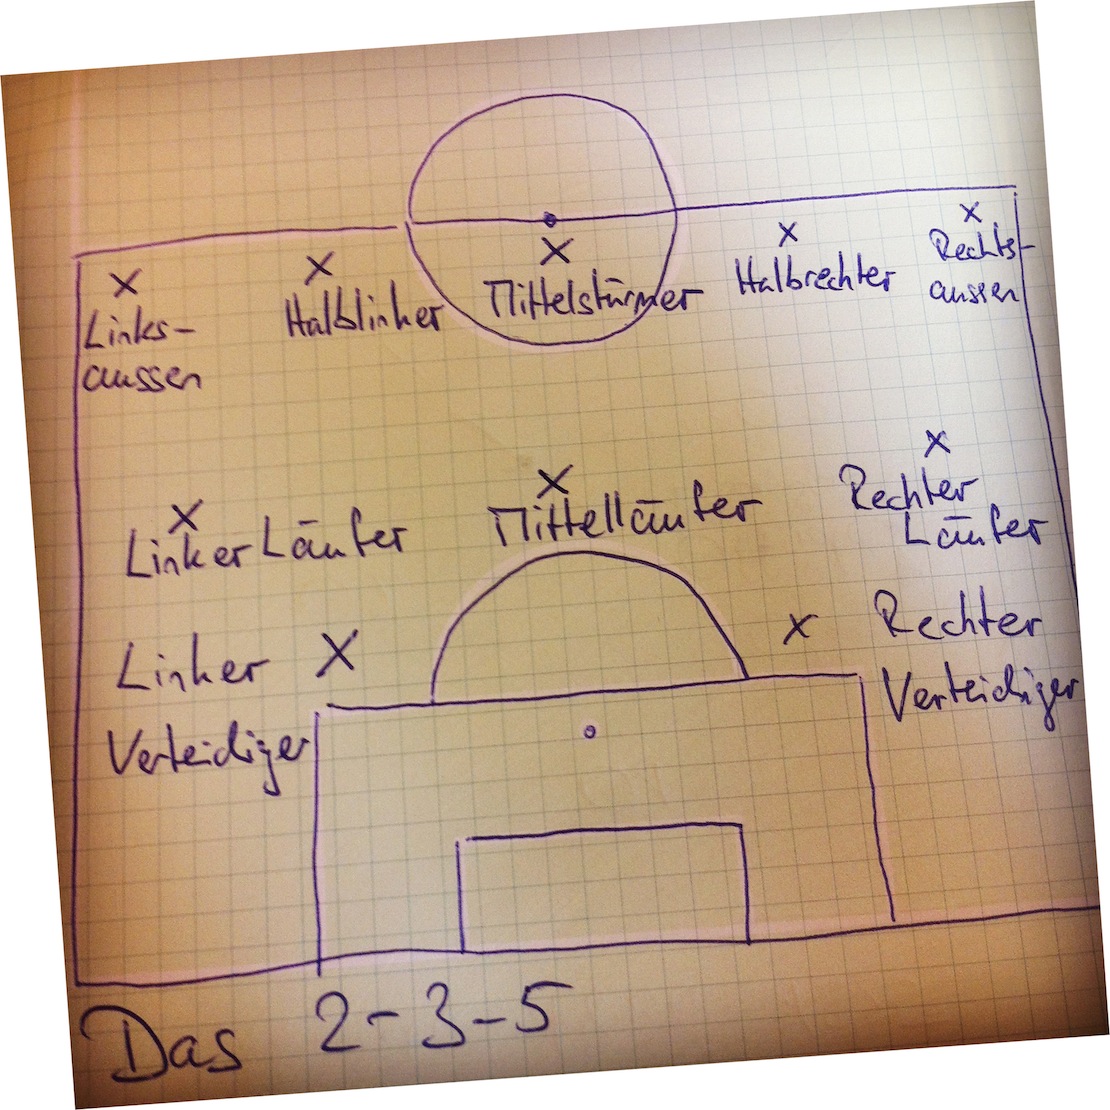 Links-
aussen
Halblinker
Mittelstürmer
Halbrechter
Rechts-
aussen
Linker Läufer
Mittelläufer
Rechter
Läufer
Linker
Verteidiger
Rechter
Verteidiger
Das 2-3-5